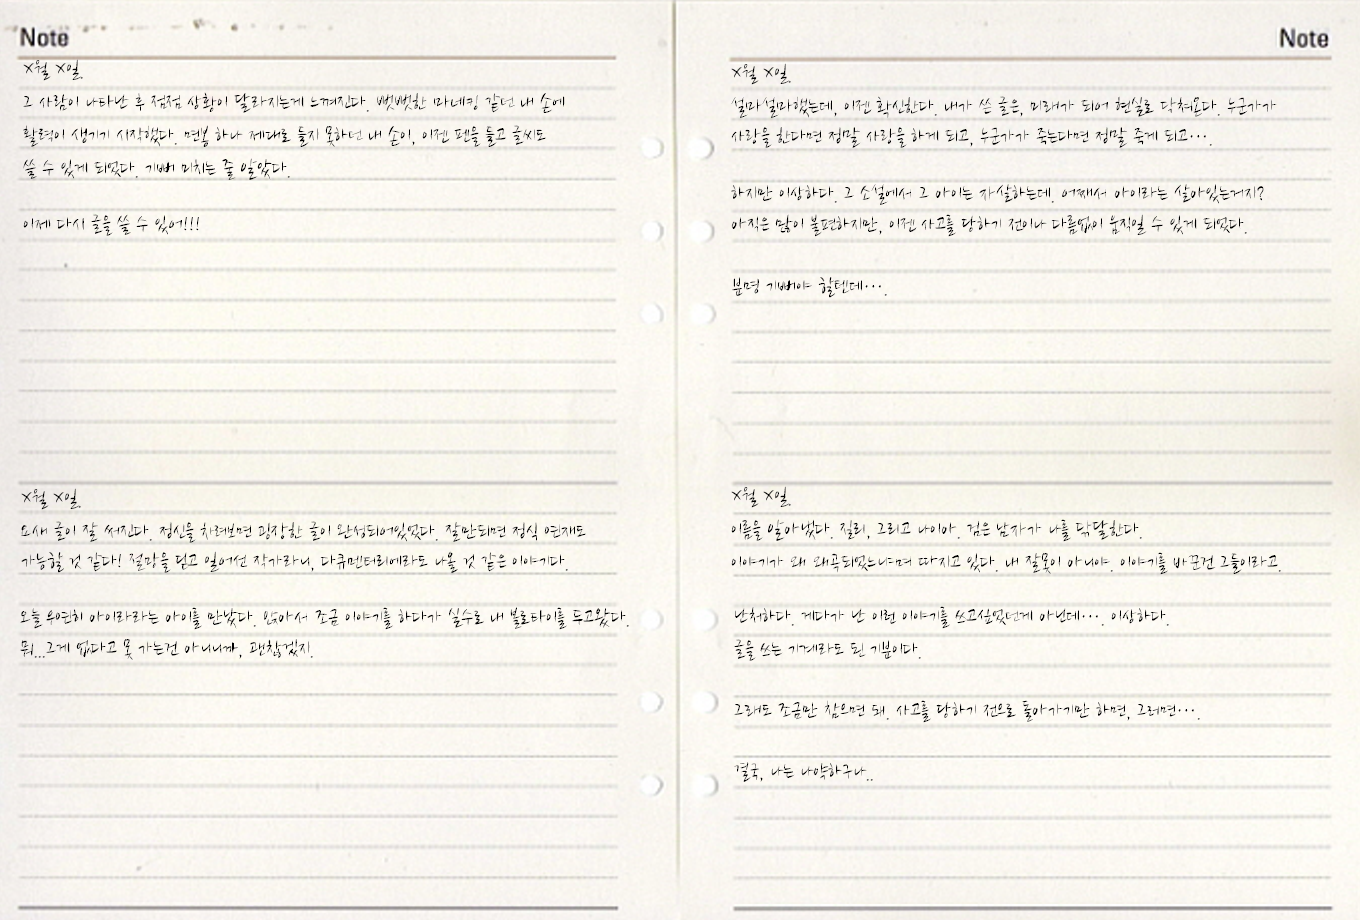 Note
X월 X일.
그 사람이 나타난 후 점점 상황이 달라지는게 느껴진다. 뻣뻣한 마네킹 같던 내 손에
활력이 생기기 시작했다. 면봉 하나 제대로 들지 못하던 내 손이, 이젠 펜을 들고 글씨도
쓸 수 있게 되었다. 기뻐 미치는 줄 알았다.
이제 다시 글을 쓸 수 있어!!!
X월 X일.
요새 글이 잘 써진다. 정신을 차려보면 굉장한 글이 완성되어있었다. 잘만되면 정식 연재도
가능할 것 같다! 절망을 딛고 일어선 작가라니, 다큐멘터리에라도 나올 것 같은 이야기다.
오늘 우연히 아이라라는 아이를 만났다. 앉아서 조금 이야기를 하다가 실수로 내 볼로타이를 두고왔다.
뭐...그게 없다고 못 가는건 아니니까, 괜찮겠지.
Note
X월 X일.
설마설마했는데, 이젠 확신한다. 내가 쓴 글은, 미래가 되어 현실로 닥쳐온다. 누군가가
사랑을 한다면 정말 사랑을 하게 되고, 누군가가 죽는다면 정말 죽게 되고….
하지만 이상하다. 그 소설에서 그 아이는 자살하는데. 어째서 아이라는 살아있는거지?
아직은 많이 불편하지만, 이젠 사고를 당하기 전이나 다름없이 움직일 수 있게 되었다.
분명 기뻐야 할텐데….
X월 X일.
이름을 알아냈다. 질리, 그리고 나이아. 검은 남자가 나를 닦달한다.
이야기가 왜 왜곡되었느냐며 따지고 있다. 내 잘못이 아니야. 이야기를 바꾼건 그들이라고.
난처하다. 게다가 난 이런 이야기를 쓰고싶었던게 아닌데…. 이상하다.
글을 쓰는 기계라도 된 기분이다.
그래도 조금만 참으면 돼. 사고를 당하기 전으로 돌아가기만 하면, 그러면….
결국, 나는 나약하구나..